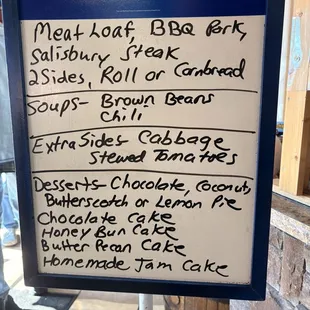 Meat Loaf, BBQ Pork,
Salisbury Steak
2 Sides, Roll or Cornbread
Soups- Brown Beans
Chili
Extra Sides- Cabbage
Stewed Tomatoes
Desserts- Chocolate, Coconut,
Butterscotch or Lemon Pie
Chocolate Cake
Honey Bun Cake
Butter Pecan Cake
Homemade Jam Cake